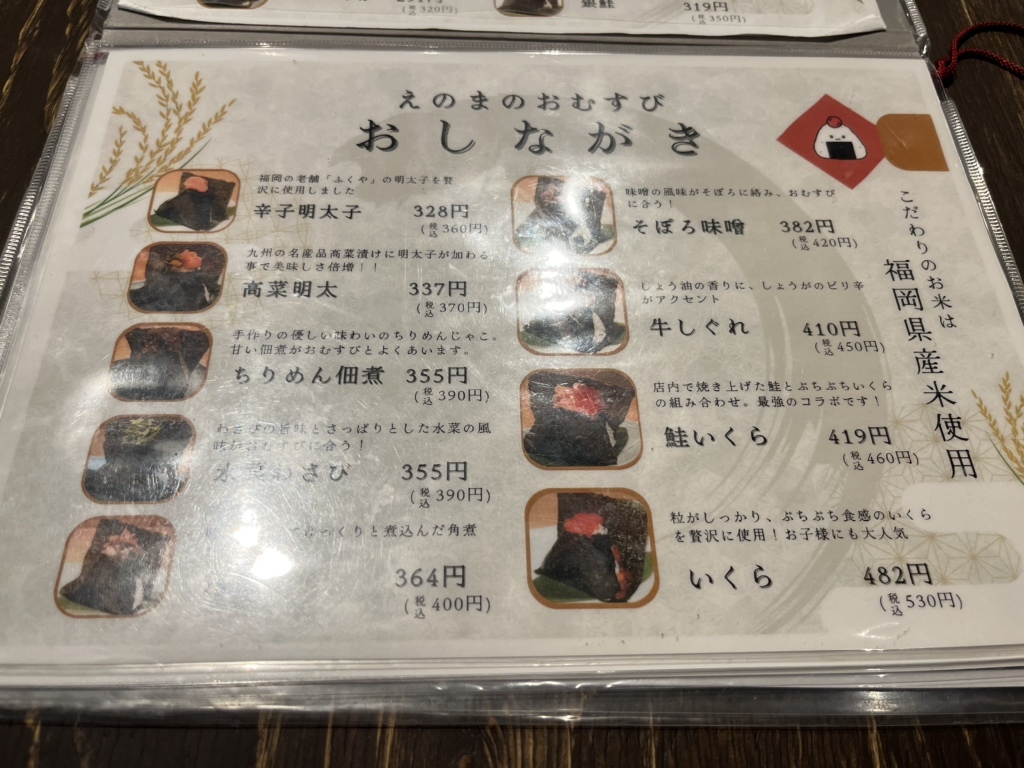 (税込320円)
銀鮭
319円
(税込350円)
えのまのおむすび
おしながき
福岡の老舗「ふくや」の明太子を贅
沢に使用しました
辛子明太子 328円
(税込360円)
九州の名産品高菜漬けに明太子が加わる
事で美味しさ倍増！！
高菜明太 337円
(税込370円)
手作りの優しい味わいのちりめんじゃこ。
甘い佃煮がおむすびとよくあいます。
ちりめん佃煮 355円
(税込390円)
わさびの旨味とさっぱりとした水菜の風
味がおむすびに合う！
水菜わさび 355円
(税込390円)
っくりと煮込んだ角煮
364円
(税込400円)
味噌の風味がそぼろに絡み、おむすび
に合う！
そぼろ味噌 382円
(税込420円)
しょう油の香りに、しょうがのピリ辛
がアクセント
牛しぐれ 410円
(税込450円)
店内で焼き上げた鮭とぷちぷちいくら
の組み合わせ。最強のコラボです！
鮭いくら 419円
(税込460円)
粒がしっかり、ぷちぷち食感のいくら
を贅沢に使用！お子様にも大人気
いくら 482円
(税込530円)
こだわりのお米は
福岡県産米使用